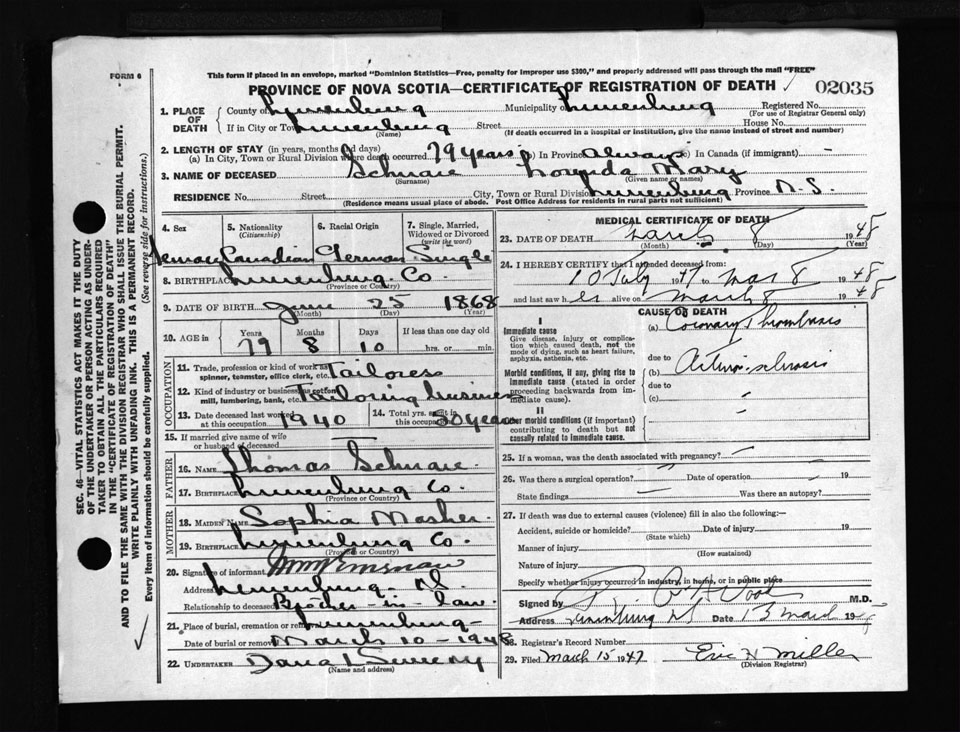 FORM 6
This form if placed in an envelope, marked "Dominion Statistics—Free, penalty for improper use $300," and properly addressed will pass through the mail "FREE"
PROVINCE OF NOVA SCOTIA—CERTIFICATE OF REGISTRATION OF DEATH
02035
SEC. 46—VITAL STATISTICS ACT MAKES IT THE DUTY
OF THE UNDERTAKER OR PERSON ACTING AS UNDER-
TAKER TO OBTAIN ALL THE PARTICULARS REQUIRED
IN THE "CERTIFICATE OF REGISTRATION OF DEATH"
AND TO FILE THE SAME WITH THE DIVISION REGISTRAR WHO SHALL ISSUE THE BURIAL PERMIT.
WRITE PLAINLY WITH UNFADING INK. THIS IS A PERMANENT RECORD.
Every item of information should be carefully supplied. (See reverse side for instructions.)
1. PLACE OF DEATH County of Lunenburg Municipality of Lunenburg Registered No.
(For use of Registrar General only)
If in City or Town Lunenburg Street House No.
(Name) (If death occurred in a hospital or institution, give the name instead of street and number)
2. LENGTH OF STAY (in years, months and days)
(a) In City, Town or Rural Division where death occurred 79 years (b) In Province always (c) In Canada (if immigrant) -
3. NAME OF DECEASED Schnare Mary
(Surname) (Given name or names)
RESIDENCE No. Street City, Town or Rural Division Lunenburg Province N.S.
(Residence means usual place of abode. Post Office Address for residents in rural parts not sufficient)
4. Sex 5. Nationality (Citizenship) 6. Racial Origin 7. Single, Married, Widowed or Divorced (write the word)
Female Canadian German Single
8. BIRTHPLACE Lunenburg Co.
(Province or Country)
9. DATE OF BIRTH June 25 1868
(Month) (Day) (Year)
10. AGE in Years Months Days If less than one day old
79 8 10 hrs. or min.
OCCUPATION
11. Trade, profession or kind of work as spinner, teamster, office clerk, etc. Tailoress
12. Kind of industry or business, as cotton mill, lumbering, bank, etc. Tailoring business
13. Date deceased last worked at this occupation 1940 14. Total yrs. spent in this occupation 50 years
15. If married give name of wife or husband of deceased —
FATHER
16. NAME Thomas Schnare
17. BIRTHPLACE Lunenburg Co.
(Province or Country)
MOTHER
18. MAIDEN NAME Sophia Mosher
19. BIRTHPLACE Lunenburg Co.
(Province or Country)
20. Signature of informant
Address Lunenburg N.S.
Relationship to deceased Brother-in-law
21. Place of burial, cremation or removal Lunenburg
Date of burial or removal March 10 - 1948
22. UNDERTAKER Dana L Sweeny
(Name and address)
MEDICAL CERTIFICATE OF DEATH
23. DATE OF DEATH March 8 1948
(Month) (Day) (Year)
24. I HEREBY CERTIFY that I attended deceased from:
10 July 47 to Mar 8 1948
and last saw her alive on March 8 1948
CAUSE OF DEATH
I
Immediate cause
Give disease, injury or complication which caused death, not the mode of dying, such as heart failure, asphyxia, asthenia, etc.
(a) Coronary Thrombosis
due to
Morbid conditions, if any, giving rise to immediate cause (stated in order proceeding backwards from immediate cause).
(b) Arterio-sclerosis
due to
(c)
II
Other morbid conditions (if important) contributing to death but not causally related to immediate cause.
25. If a woman, was the death associated with pregnancy? -
26. Was there a surgical operation? - Date of operation 19
State findings Was there an autopsy?
27. If death was due to external causes (violence) fill in also the following:—
Accident, suicide or homicide? Date of injury 19
(State which)
Manner of injury
(How sustained)
Nature of injury
Specify whether injury occurred in industry, in home, or in public place
Signed by M.D.
Address Lunenburg NS Date 13 March 194
28. Registrar's Record Number
29. Filed March 15 1947 Eric N Miller
(Division Registrar)